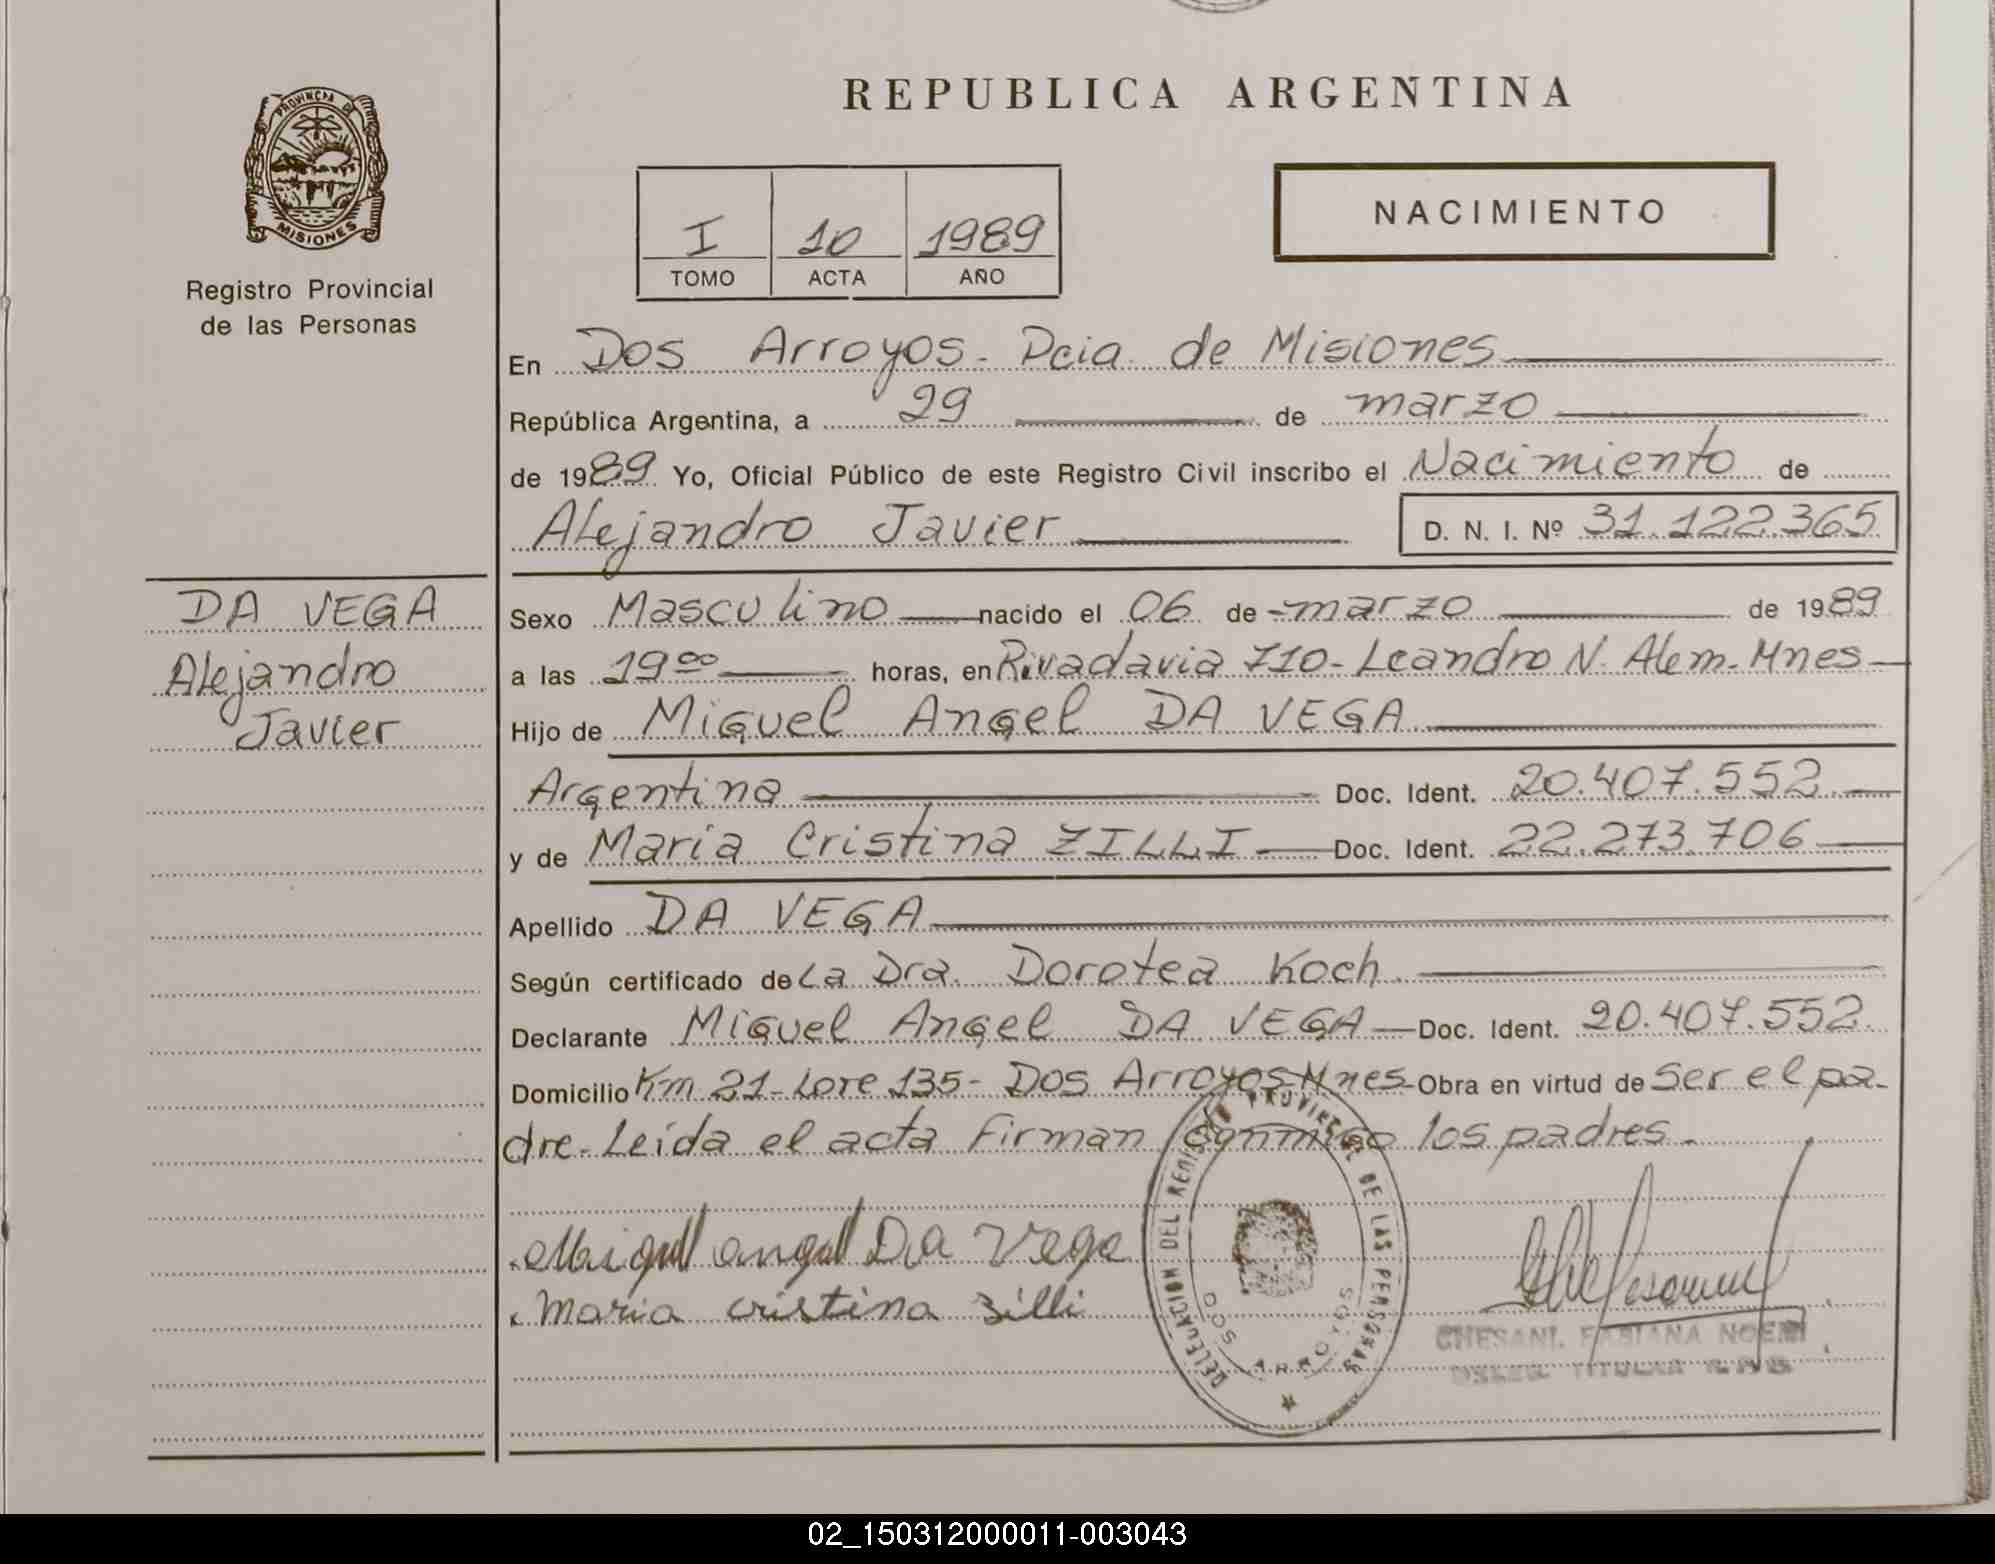 PROVINCIA DE
MISIONES
Registro Provincial
de las Personas
REPUBLICA ARGENTINA
I 10 1989
TOMO ACTA AÑO
NACIMIENTO
En Dos Arroyos - Pcia. de Misiones
República Argentina, a 29 de marzo
de 1989 Yo, Oficial Público de este Registro Civil inscribo el Nacimiento de
Alejandro Javier D. N. I. Nº 31.122.365
DA VEGA
Alejandro
Javier
Sexo Masculino nacido el 06 de marzo de 1989
a las 19 00 horas, en Rivadavia 710 - Leandro N. Alem - Mnes
Hijo de Miguel Angel DA VEGA
Argentina Doc. Ident. 20.407.552
y de María Cristina ZILLI Doc. Ident. 22.273.706
Apellido DA VEGA
Según certificado de La Dra. Dorotea Koch
Declarante Miguel Angel DA VEGA Doc. Ident. 20.407.552
Domicilio Km 21 - Lote 135 - Dos Arroyos Mnes Obra en virtud de Ser el pa-
dre - Leída el acta firman conmigo los padres.
Miguel angel Da Vega
Maria cristina Zilli
DELEGACION DEL REGISTRO PROVINCIAL DE LAS PERSONAS
DOS ARROYOS
CHESANI, FABIANA NOEMI
DELEG. TITULAR
02_150312000011-003043